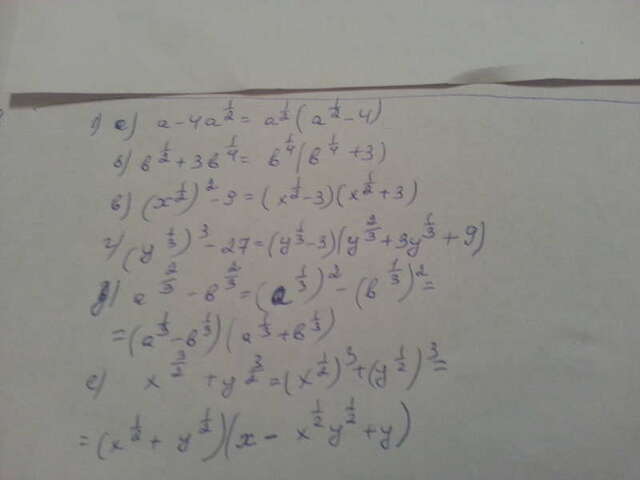 1) а) a - 4a^{1/2} = a^{1/2}(a^{1/2} - 4)
б) b^{1/2} + 3b^{1/4} = b^{1/4}(b^{1/4} + 3)
в) (x^{1/2})^2 - 9 = (x^{1/2} - 3)(x^{1/2} + 3)
г) (y^{1/3})^3 - 27 = (y^{1/3} - 3)(y^{2/3} + 3y^{1/3} + 9)
д) a^{2/3} - b^{2/3} = (a^{1/3})^2 - (b^{1/3})^2 =
= (a^{1/3} - b^{1/3})(a^{1/3} + b^{1/3})
е) x^{3/2} + y^{3/2} = (x^{1/2})^3 + (y^{1/2})^3 =
= (x^{1/2} + y^{1/2})(x - x^{1/2}y^{1/2} + y)